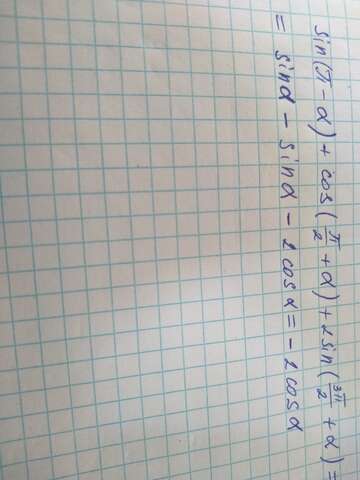 sin(π - α) + cos(π/2 + α) + 2sin(3π/2 + α) =
= sinα - sinα - 2cosα = - 2cosα